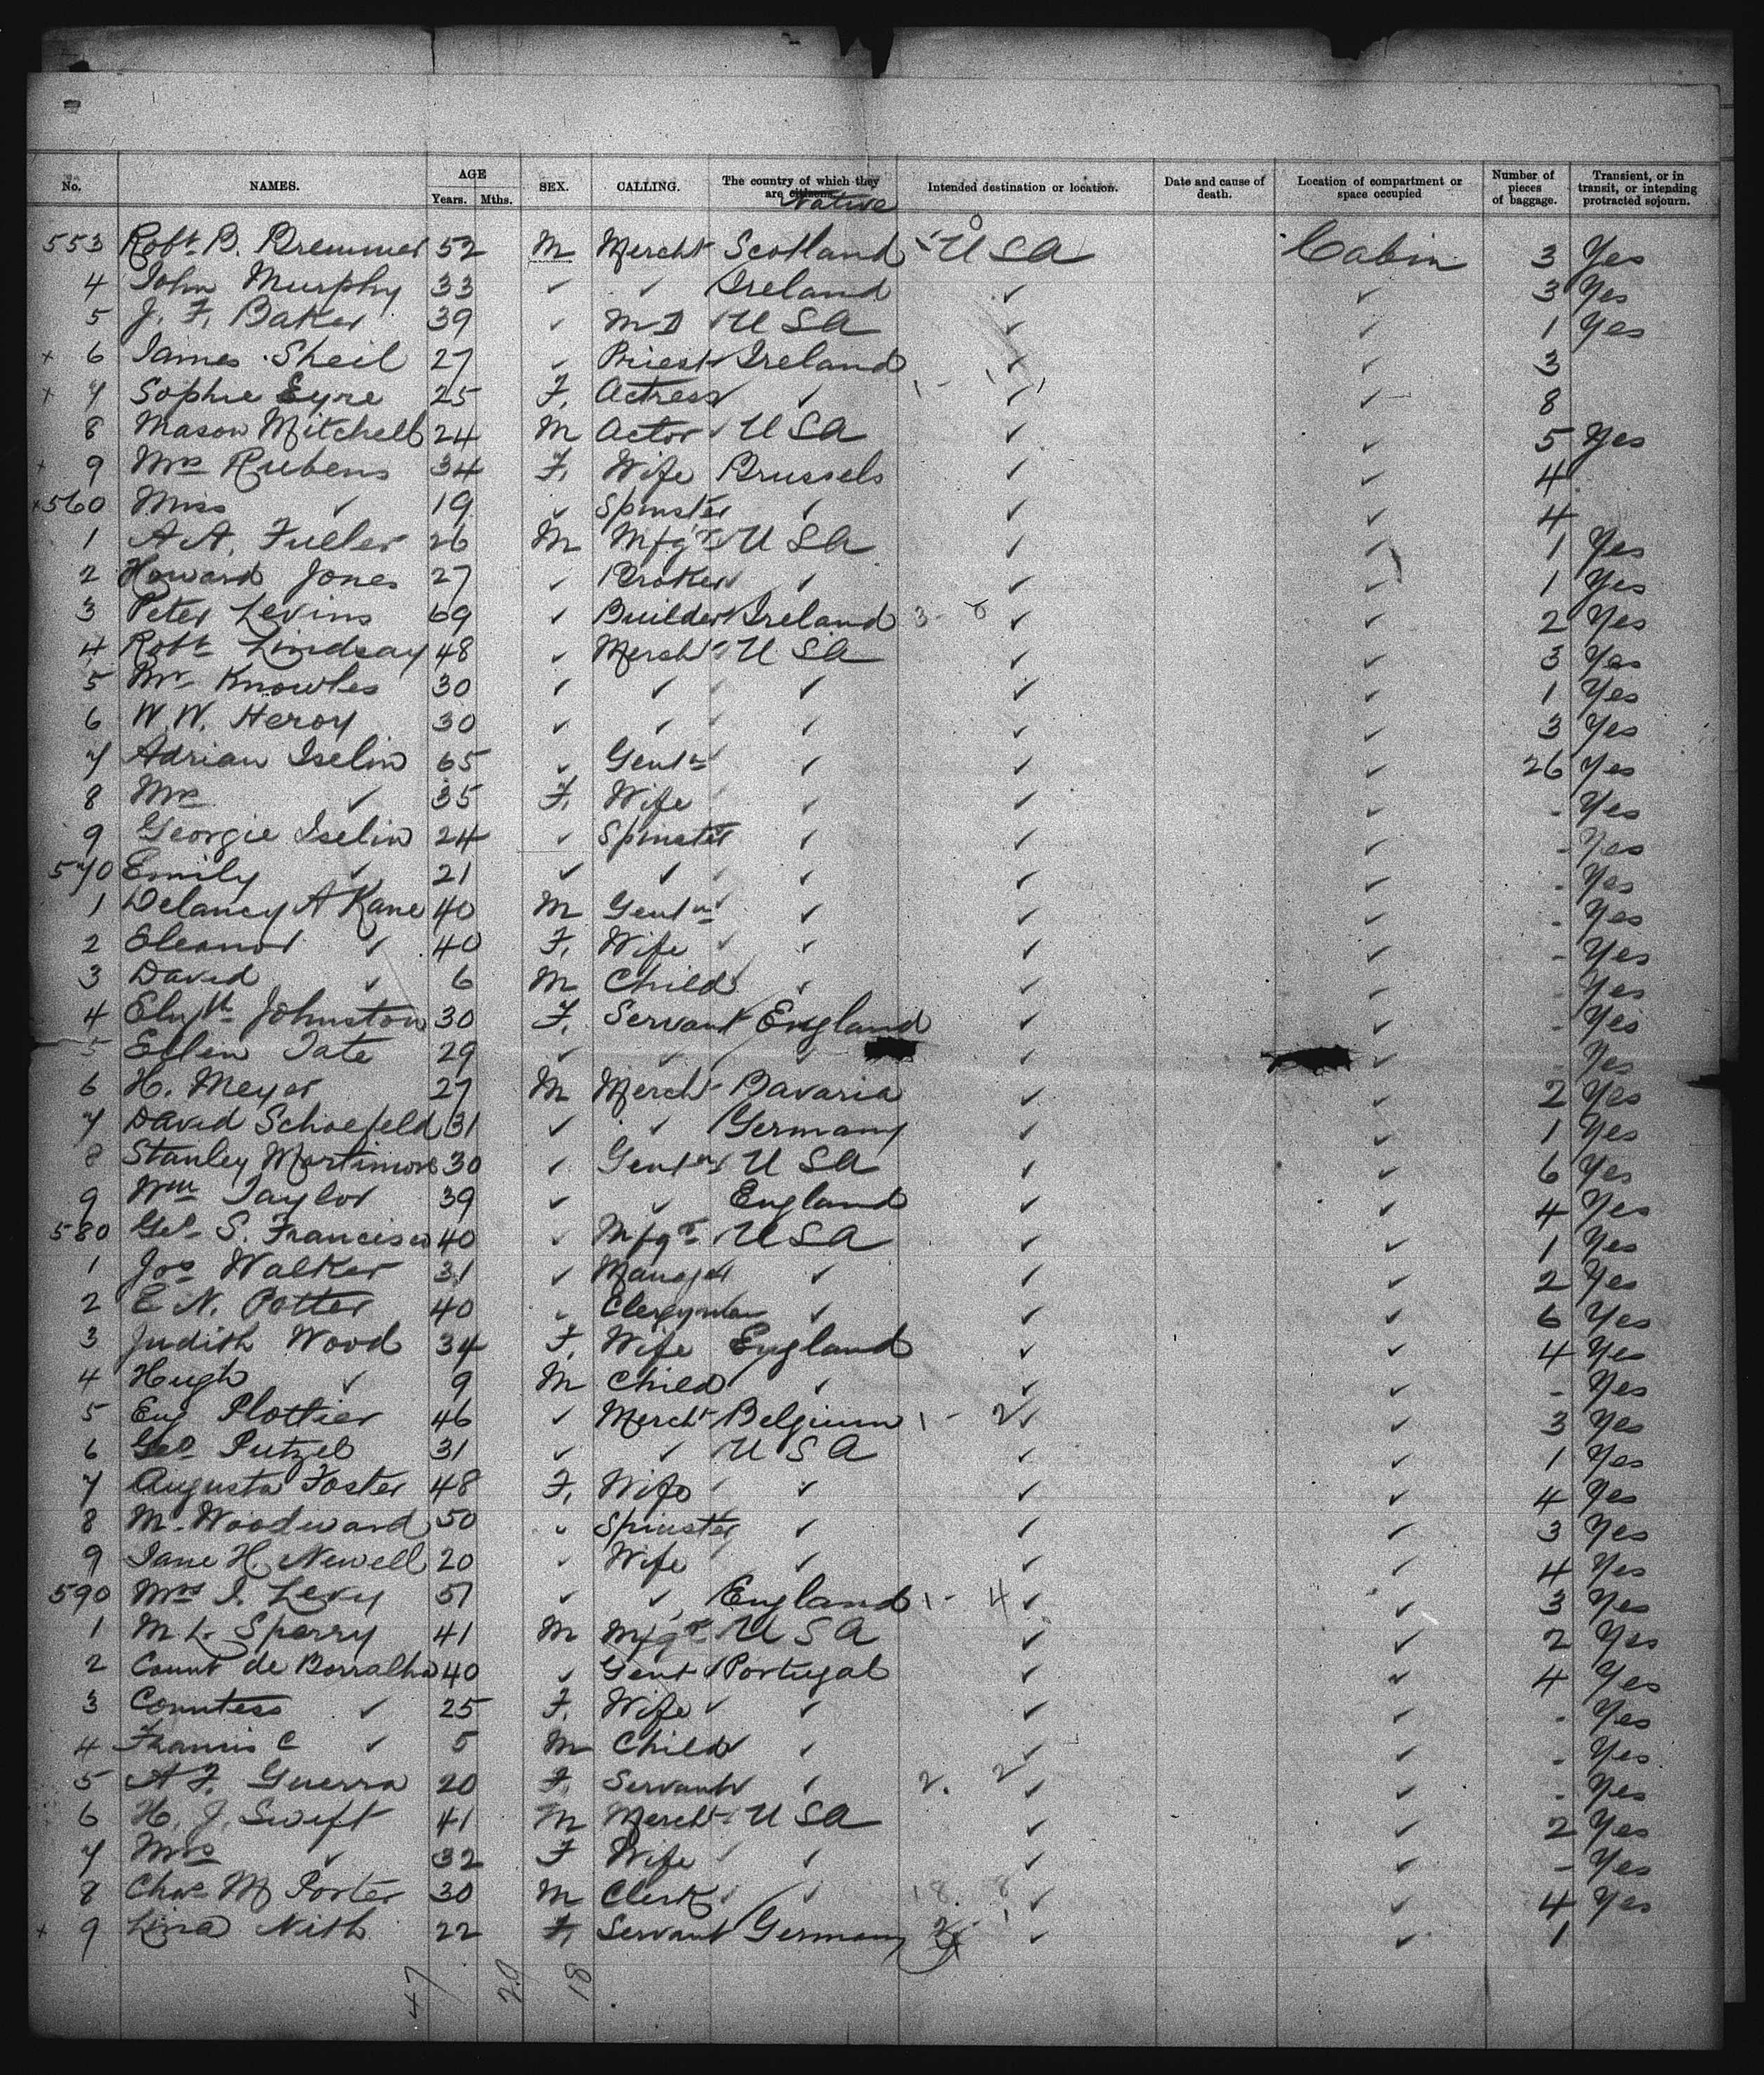 No. NAMES. AGE Years. Mths. SEX. CALLING. The country of which they are citizens. Native Intended destination or location. Date and cause of death. Location of compartment or space occupied Number of pieces of baggage. Transient, or in transit, or intending protracted sojourn.
553 Robt. B. Bremmer 52 M Mercht Scotland USA Cabin 3 Yes
4 John Murphy 33 ✓ ✓ Ireland ✓ ✓ 3 Yes
5 J. F. Baker 39 ✓ M D USA ✓ ✓ 1 Yes
x 6 James Sheil 27 ✓ Priest Ireland ✓ ✓ 3
x 7 Sophie Eyre 25 F. Actress ✓ ✓ ✓ 8
8 Mason Mitchell 24 M Actor USA ✓ ✓ 5 Yes
x 9 Mrs Rubens 34 F. Wife Brussels ✓ ✓ 4
x 560 Miss ✓ 19 ✓ Spinster ✓ ✓ ✓ 4
1 A A. Fuller 26 M Mfgr USA ✓ ✓ 1 Yes
2 Howard Jones 27 ✓ Broker ✓ ✓ ✓ 1 Yes
3 Peter Levins 69 ✓ Builder Ireland ✓ ✓ 2 Yes
4 Robt Lindsay 48 ✓ Mercht USA ✓ ✓ 3 Yes
5 Mr Knowles 30 ✓ ✓ ✓ ✓ ✓ 1 Yes
6 W. W. Heroy 30 ✓ ✓ ✓ ✓ ✓ 3 Yes
7 Adrian Iselin 65 ✓ Gentn ✓ ✓ ✓ 26 Yes
8 Mrs ✓ 35 F. Wife ✓ ✓ ✓ - Yes
9 Georgie Iselin 24 ✓ Spinster ✓ ✓ ✓ - Yes
570 Emily ✓ 21 ✓ ✓ ✓ ✓ ✓ - Yes
1 Delancy A Kane 40 M Gentn ✓ ✓ ✓ - Yes
2 Eleanor ✓ 40 F. Wife ✓ ✓ ✓ - Yes
3 David ✓ 6 M Child ✓ ✓ ✓ - Yes
4 Elizth Johnston 30 F. Servant England ✓ ✓ - Yes
5 Ellen Tate 29 ✓ ✓ ✓ ✓ ✓ - Yes
6 H. Meyer 27 M Mercht Bavaria ✓ ✓ 2 Yes
7 David Schoefeld 31 ✓ ✓ Germany ✓ ✓ 1 Yes
8 Stanley Mortimore 30 ✓ Gentn USA ✓ ✓ 6 Yes
9 Wm Taylor 39 ✓ ✓ England ✓ ✓ 4 Yes
580 Geo S. Francisco 40 ✓ Mfgr USA ✓ ✓ 1 Yes
1 Jos Walker 31 ✓ Manager ✓ ✓ ✓ 2 Yes
2 E N. Potter 40 ✓ Clergyman ✓ ✓ ✓ 6 Yes
3 Judith Wood 34 F. Wife England ✓ ✓ 4 Yes
4 Hugh ✓ 9 M Child ✓ ✓ ✓ - Yes
5 Eug Plottier 46 ✓ Mercht Belgium 1 - 2 ✓ ✓ 3 Yes
6 Geo Putzel 31 ✓ ✓ USA ✓ ✓ 1 Yes
7 Augusta Foster 48 F. Wife ✓ ✓ ✓ 4 Yes
8 M. Woodward 50 ✓ Spinster ✓ ✓ ✓ 3 Yes
9 Jane H. Newell 20 ✓ Wife ✓ ✓ ✓ 4 Yes
590 Mrs I. Levy 51 ✓ ✓ England 1 - 4 ✓ ✓ 3 Yes
1 M L. Sperry 41 M Mfgr USA ✓ ✓ 2 Yes
2 Count de Borralha 40 ✓ Gent Portugal ✓ ✓ 4 Yes
3 Countess ✓ 25 F. Wife ✓ ✓ ✓ - Yes
4 Francis C ✓ 5 M Child ✓ ✓ ✓ - Yes
5 A F. Guerra 20 F. Servant ✓ 2. 2 ✓ ✓ - Yes
6 H. J. Swift 41 M Mercht USA ✓ ✓ 2 Yes
7 Mrs ✓ 32 F Wife ✓ ✓ ✓ - Yes
8 Chas M Porter 30 M Clerk ✓ 18. 8 ✓ ✓ 4 Yes
x 9 Lina Nith 22 F. Servant Germany ✓ ✓ 1
47 29 18